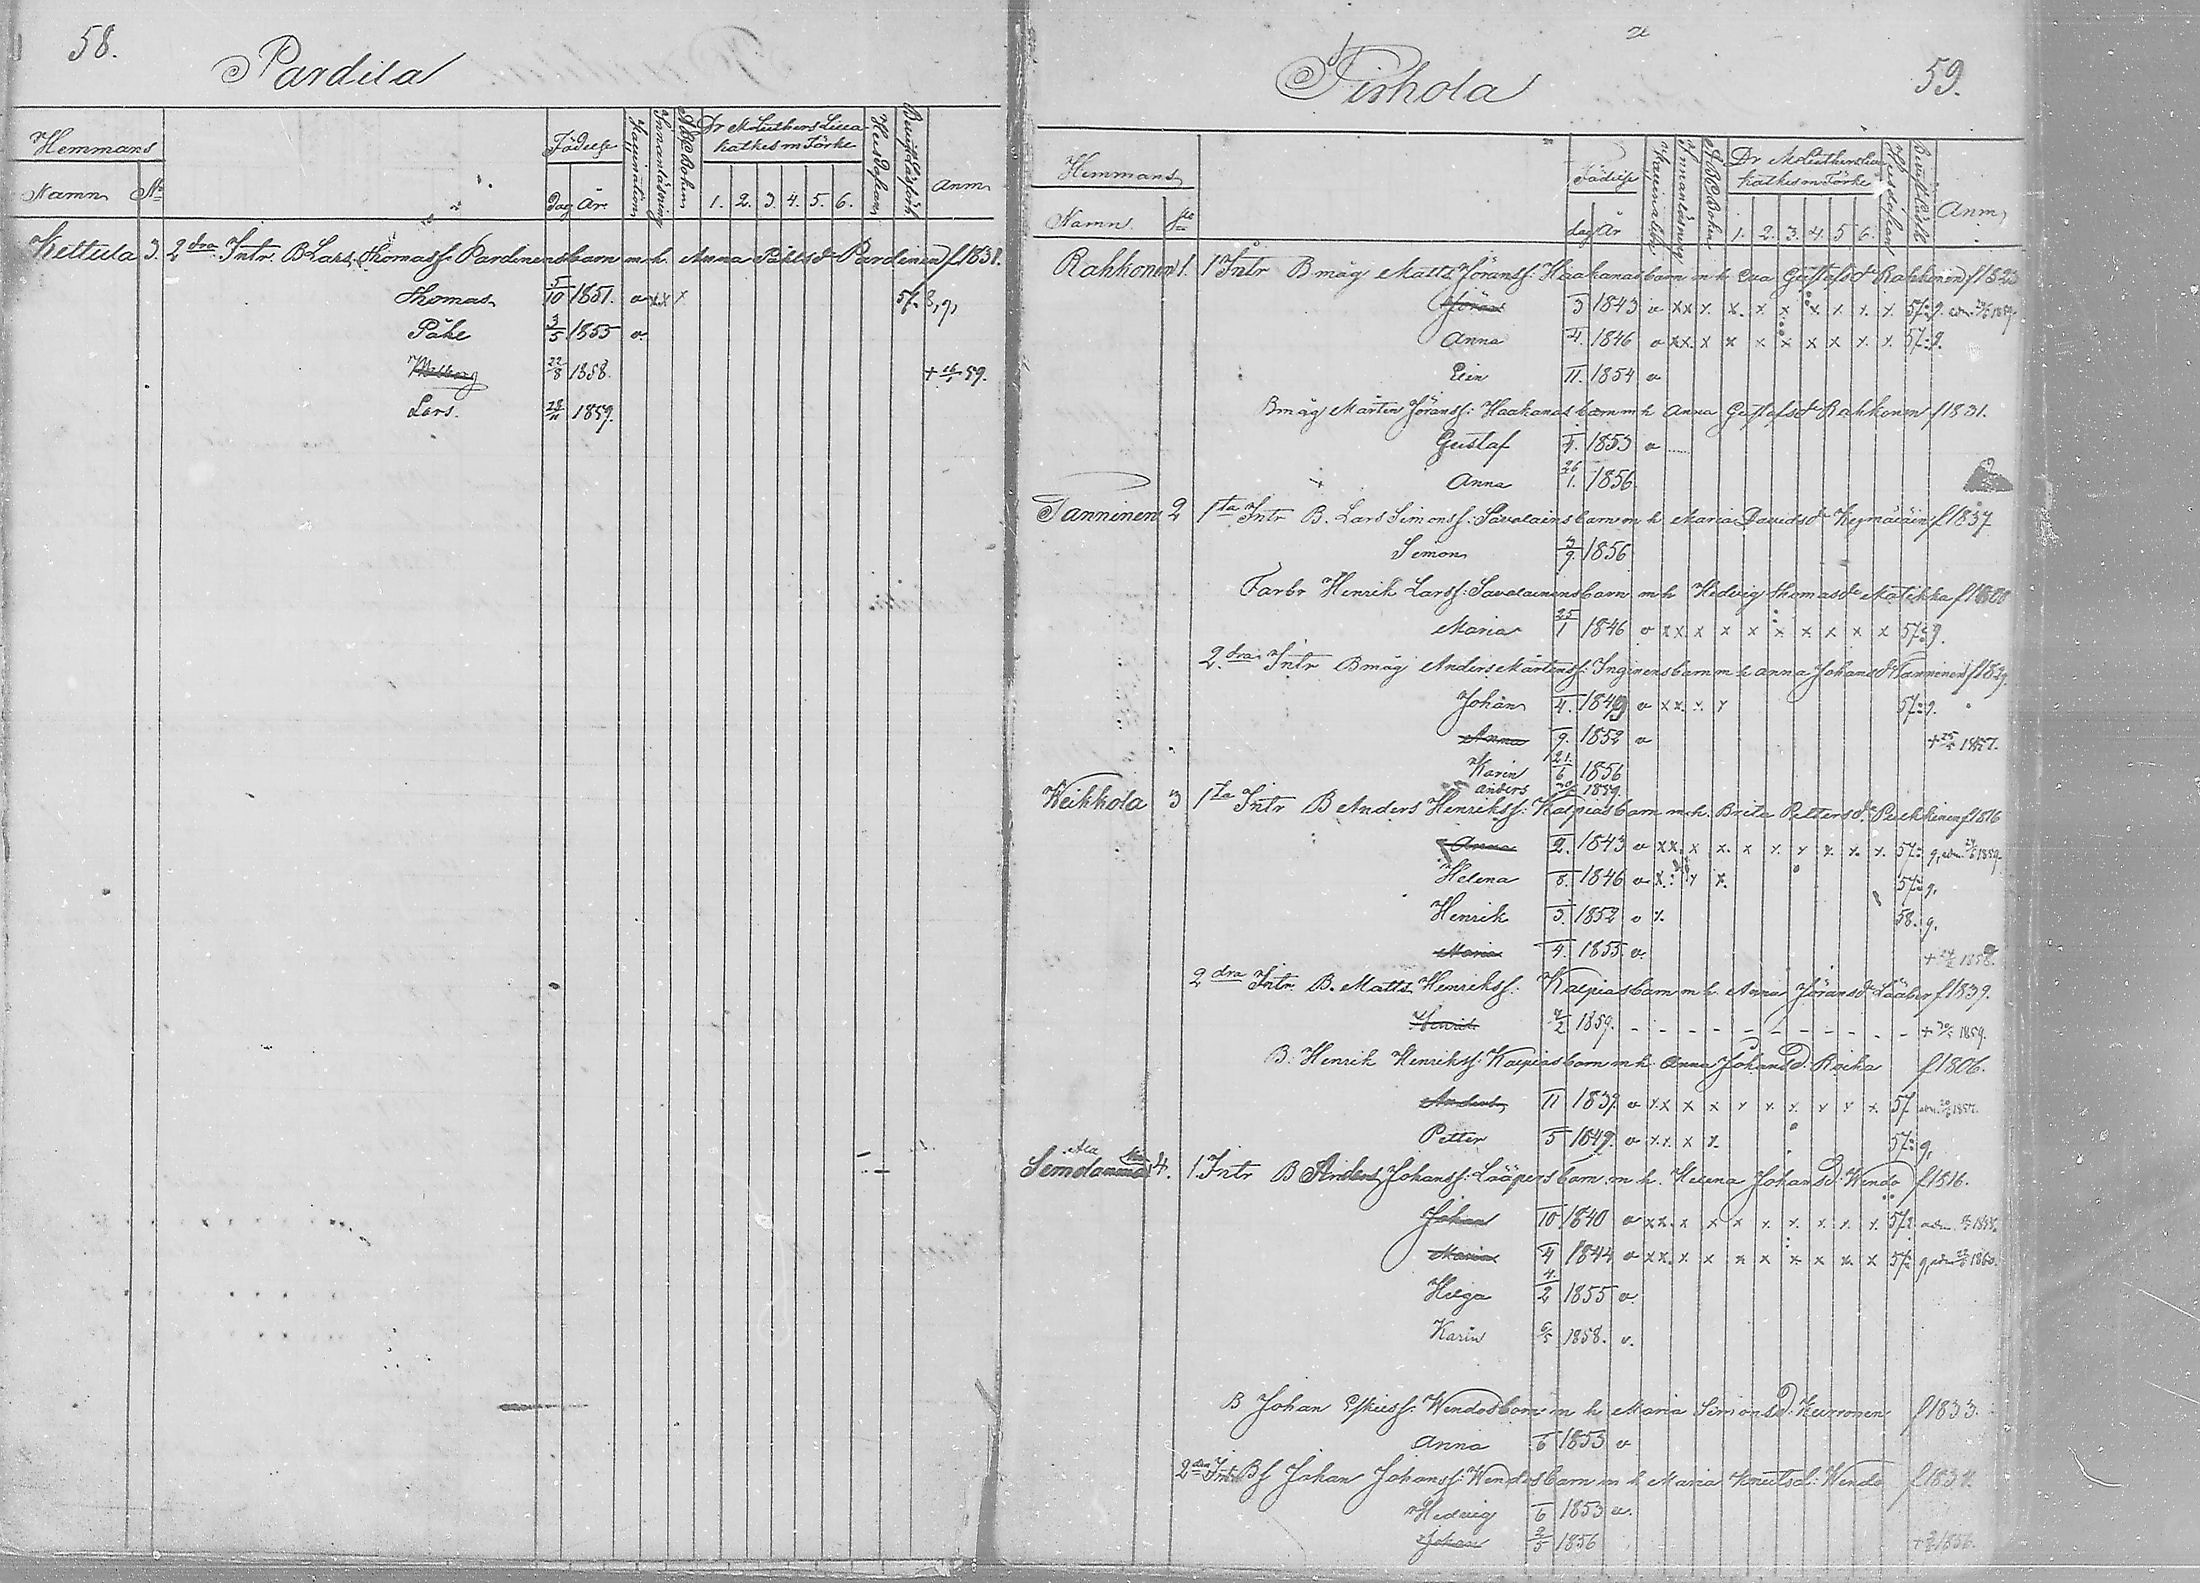 58.
Pardila
Hemmans
Namn No
Födelse
dag År
Vaccination
Innanläsning
ABC Boken
Dr M Luthers Lilla
Katkes m Förkl
1. 2. 3. 4. 5. 6.
Hustaflan
Anm
Kettula 3. 2dra Intr B Lars Thomass: Pardinens barn m h Anna Påhlsdr Pardinen f 1831.
Thomas 5/10 1851. v x x x 57. 8, 9,
Påhl 3/5 1855 v.
22/8 1858. + 59.
Lars. 1859.
59.
Pirhola
Hemmans
Namn No
Födelse
dag År
Vaccination
Innanläsning
ABC Boken
Dr M Luthers Lilla
Katkes m Förkl
1. 2. 3. 4. 5. 6.
Hustaflan
Anm,
Rahkonen 1. 1 Intr B måg Matts Jöranss: Haakanas barn m h Eva Gustafsdr Rahkonen f 1823
Jöran 3 1843 v x x x. x. x x x x. x. x. 57. 9. 1859.
Anna 4. 1846 v x x. x x x x x x x. x. 57. 9.
Elin 11. 1854 v
B måg Mårten Jöranss: Haakanas barn m h Anna Gustafsdr Rahkonen f 1831.
Gustaf 4. 1853 v
Anna 26/1. 1856
Tanninen 2 1sta Intr B. Lars Simonss: Savolainens barn m h Maria Davidsdr f 1837
Simon 3/9. 1856
Farbr Henrik Larss: Savolainens barn m h Hedvig Thomasdr Matikka f 1800
Maria 25/1 1846 v x x. x x x x x x x 57. 9.
2. dra Intr B måg Anders Mårtenss: Inginens barn m h Anna Johansdr Tanninen f 1829.
Johan 4. 1849 v x x. x. x 57. 9.
Anna 9. 1852 v + 1857.
Karin 21/6 1856
Anders 1859.
Weikkola 3 1sta Intr B Anders Henrikss: Kaipias barn m h. Brita Pettersdr Pukkinen f 1816
Anna 2. 1843 v x x. x x. x x. x x. x. x. 57. 9, 1859.
Helena 8. 1846 v. x. x x. 57. 9.
Henrik 3. 1852 v x. 58. 9.
Maria 4. 1855 v. + 1858.
2 dra Intr. B. Matts Henrikss: Kaipias barn m h. Anna Jöransdr Lääber f 1839.
Henrik /2 1859. - - - - - - - - - - - + 1859.
B. Henrik Henrikss: Kaipias barn m h. Anna Johansd: Racha f 1806.
Anders 11 1839. v x x x x x x x. x x x. 57. 1857.
Petter 5 1849. v x x. x x. 57. 9,
4. 1. Intr B Anders Johanss: Lääpers barn m h. Helena Johansd: Wendo f 1816.
Johan 10 1840 v x x. x x x x. x. x. x. x. 57. 1858.
Maria 4 1844 v x x. x x x x x. x x. x 57. 9, 1860.
Helga 4/2 1855 v.
Karin 6/5 1858. v.
B Johan Eskilss: Wendos barn m h Maria Simonsd: f 1833.
Anna 6 1853 v
2 dra Intr Bf Johan Johanss: Wendos barn m h Maria Knutsd: Wendo
Hedvig 6 1853 v.
Johan /5 1856 + 1856.